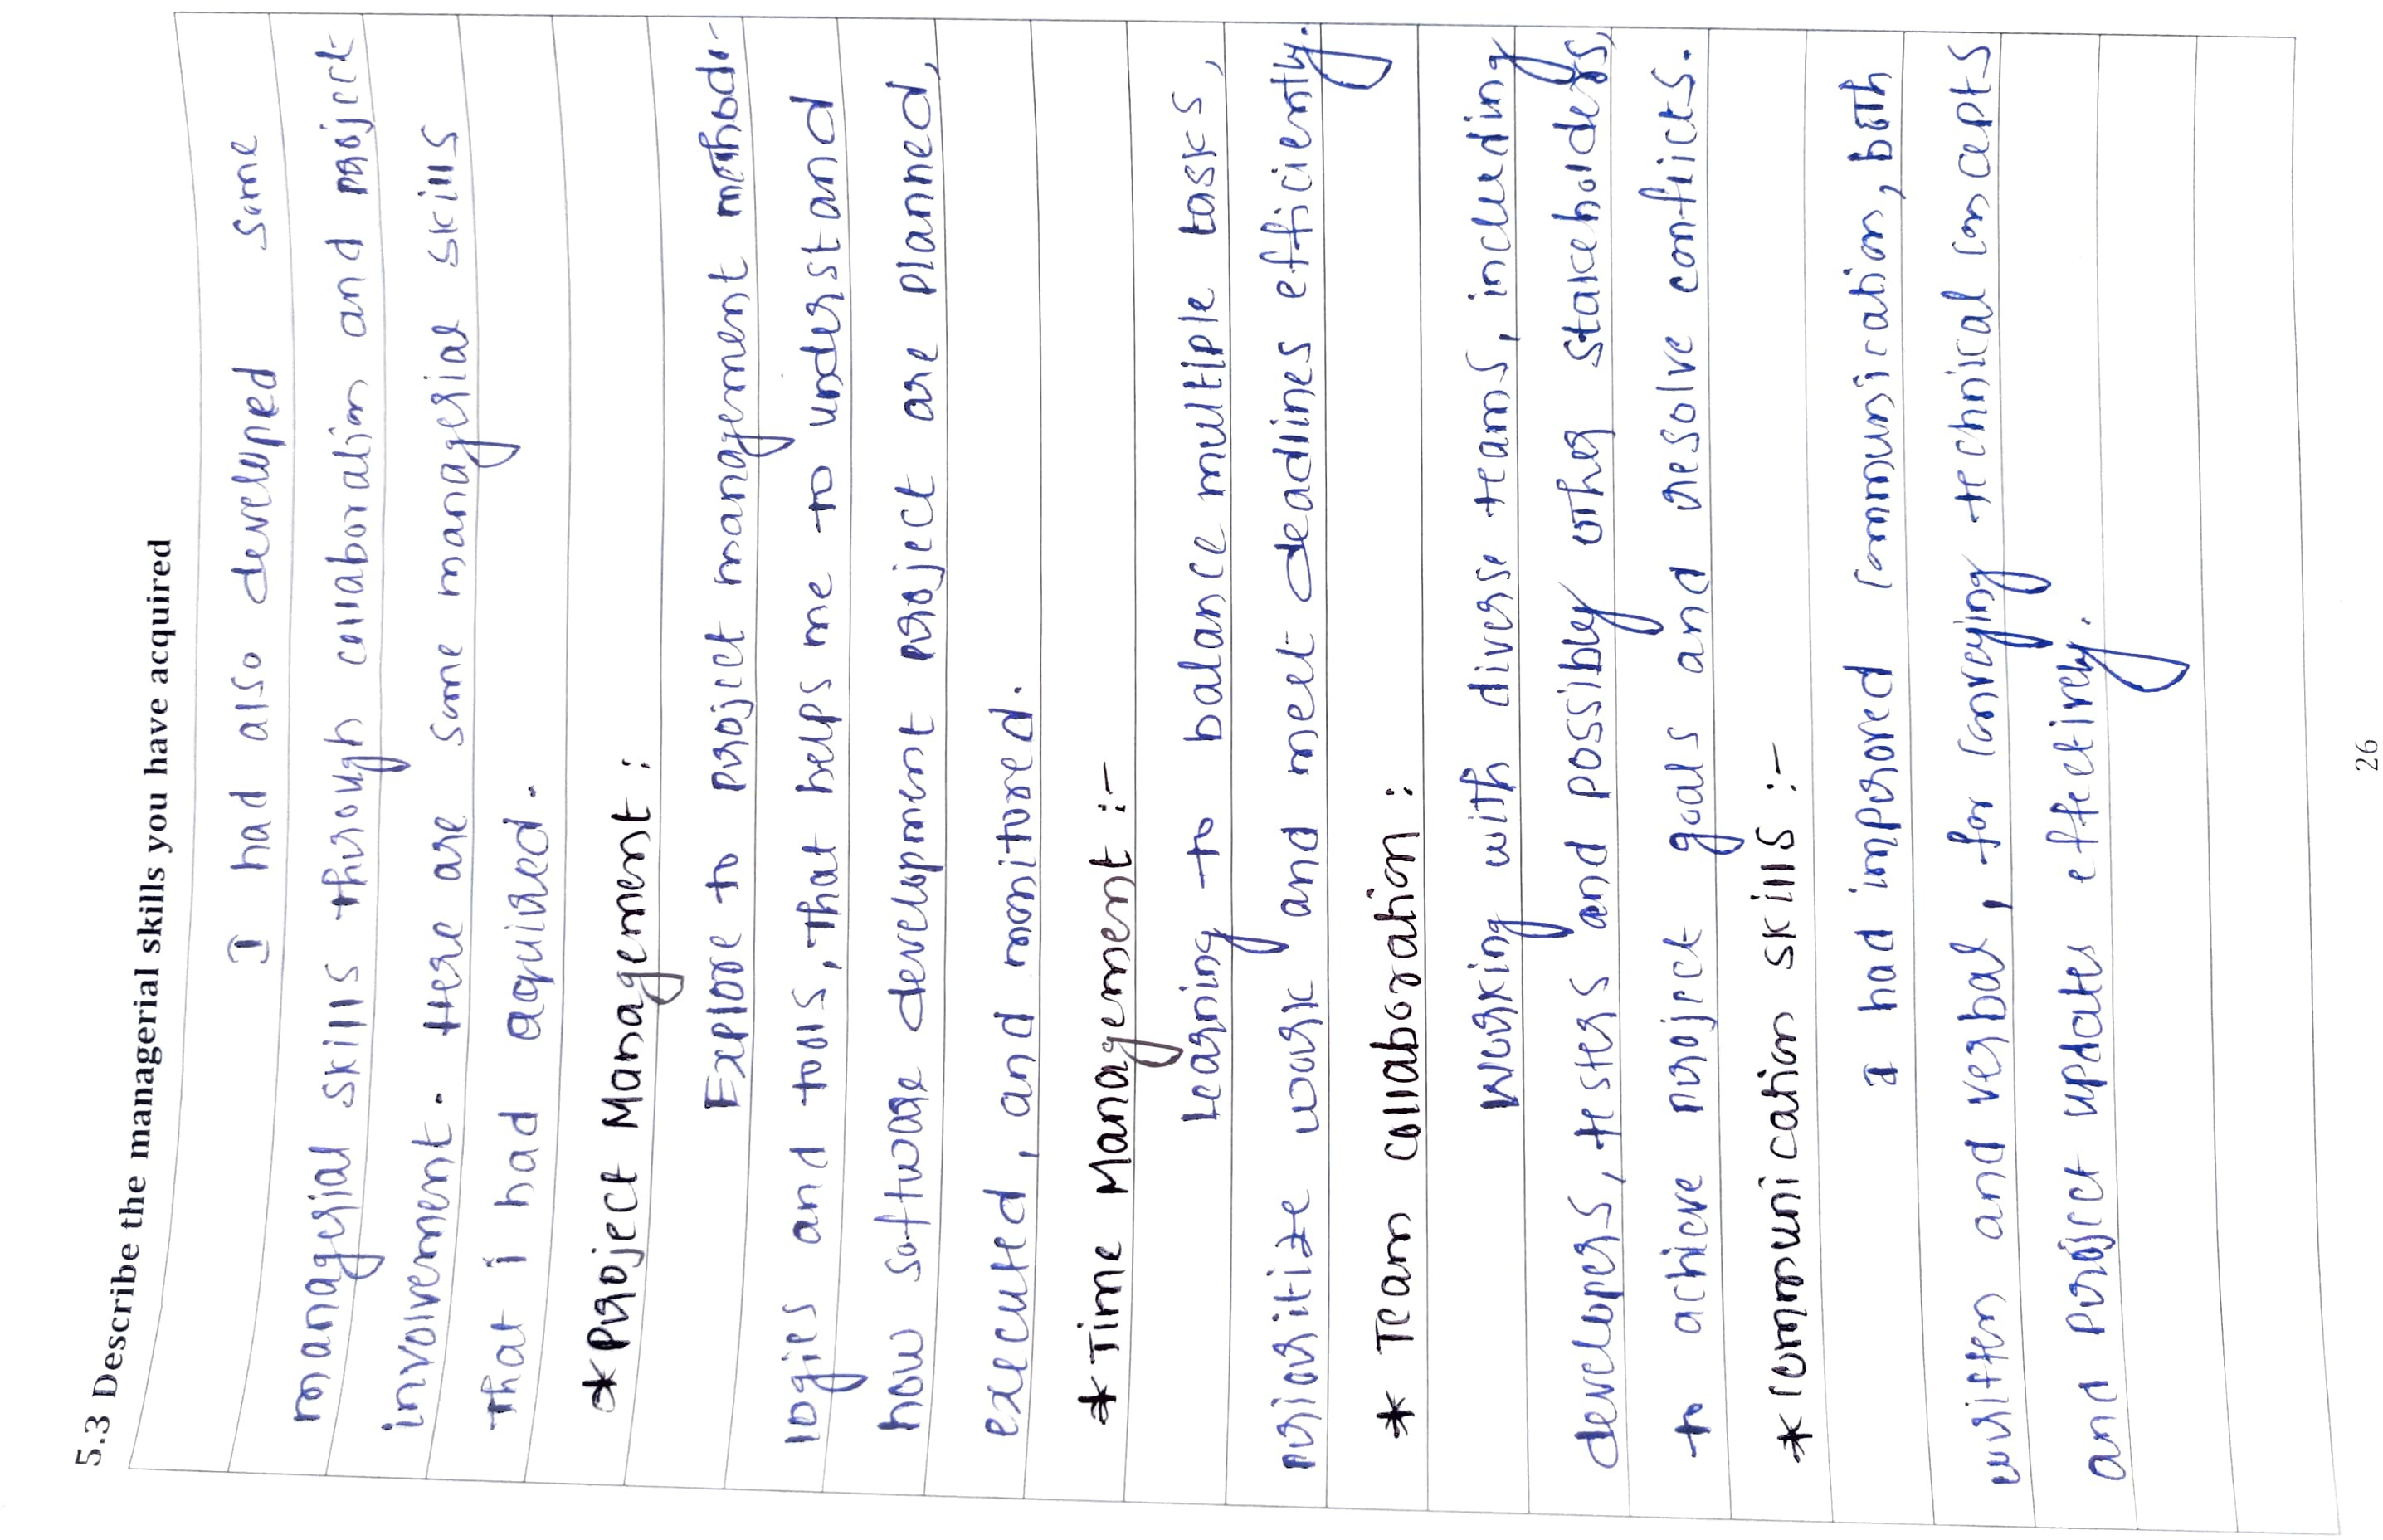 5.3 Describe the managerial skills you have acquired
I had also developed some
managerial skills through collaboration and project
involvement. Here are some managerial skills
that i had aquired.
*Project Management:
Explore to project management methodo-
logies and tools, that helps me to understand
how software development project are planned,
executed, and monitored.
*Time Management :-
Learning to balance multiple tasks,
prioritize work and meet deadlines efficiently.
* Team collaboration:
Working with diverse teams, including
developers, testers and possibly other stakeholders,
to achieve project goals and resolve conflicts.
*Communication skills :-
I had improved communication, both
written and verbal, for conveying technical concepts
and project updates effectively.
26